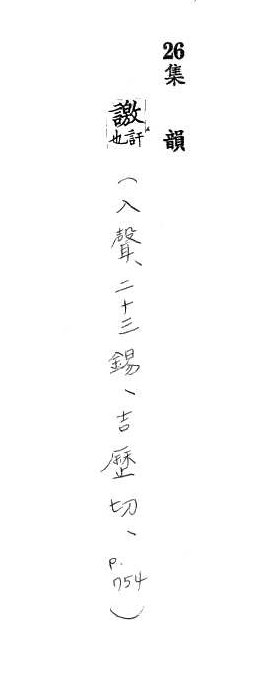 26集韻
譤訐也(入聲、二十三錫、吉歷切、p.754)